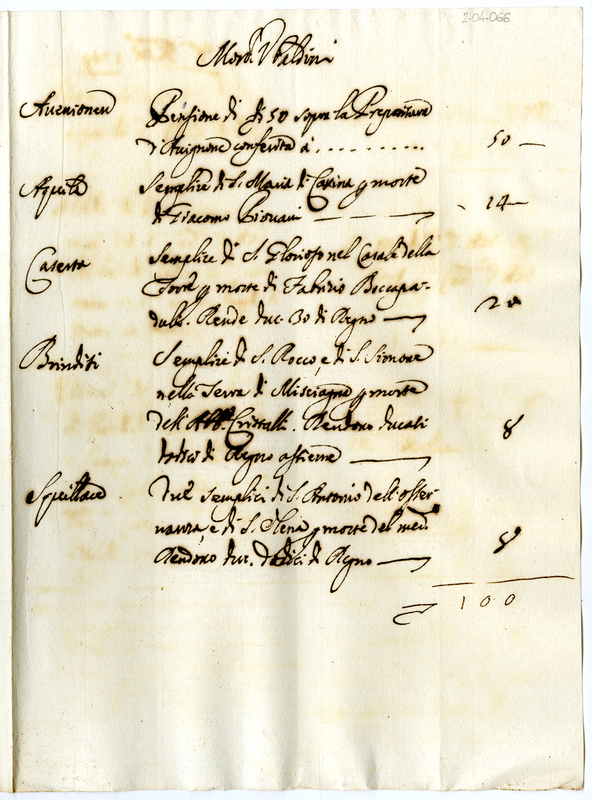 2-04-066
Mons.r Ubaldini
Auenionen Pensione di 50 sopra la Prepositura
d'Auignone conferita à . . . . . . . . . . 50 —
Aquila Semplice di S. Maria di p morte
di Giacomo Piouani — 14 —
Caserta Semplice di S. nel Casale della
Torre p morte di Fabritio Boccapa-
dulli. Rende duc. 30 di Regno — 20
Brindisi Semplici di S. Rocco, e di S. Simone
nella Terra di Misciagna p morte
dell' Abb. Rendono ducati
dodici di Regno assieme — 8
Squillace Due semplici di S. Antonio dell'osser-
uanza, e di S. Elena p morte del med.
Rendono duc. dodici di Regno — 8
100